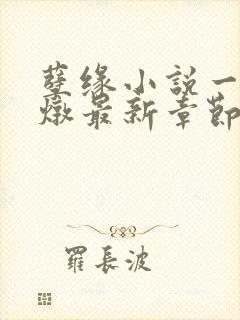 孽缘小説一
燉最新章節
羅長波